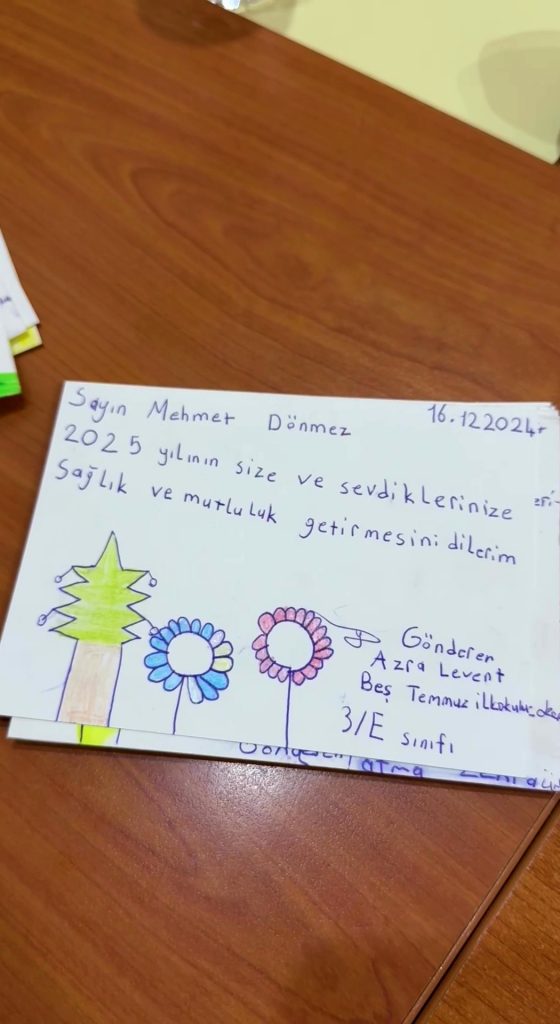 Sayın Mehmet Dönmez
16.12.2024
2025 yılının size ve sevdiklerinize
Sağlık ve mutluluk getirmesini dilerim
Gönderen
Azra Levent
Beş Temmuz ilkokulu
3/E sınıfı